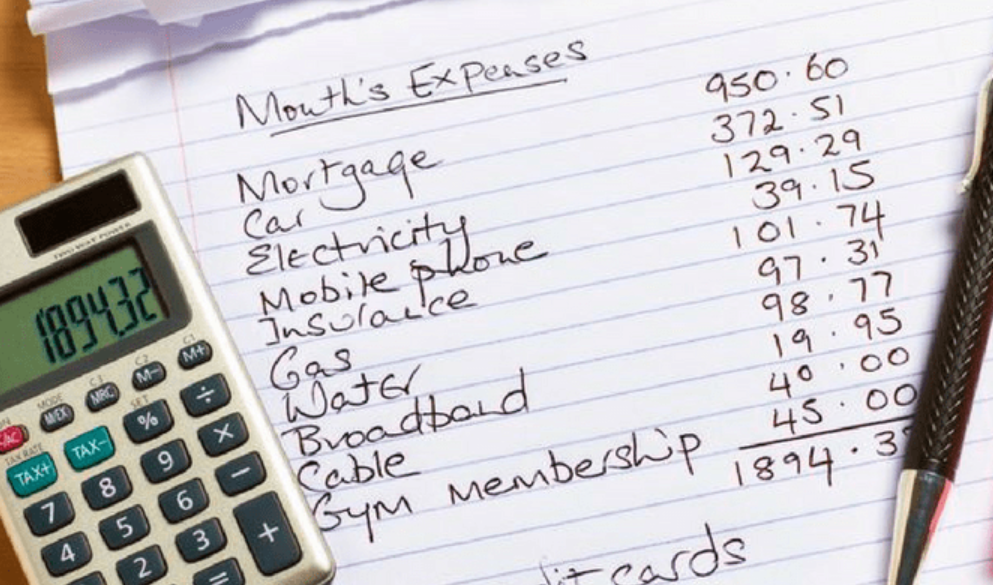 Month's Expenses
Mortgage 950.60
Car 372.51
Electricity 129.29
Mobile phone 39.15
Insurance 101.74
Gas 97.31
Water 98.77
Broadband 19.95
Cable 40.00
Gym Membership 45.00
1894.3
cards
TWO WAY POWER
1894.32
C3 C2 C1
MODE M/EX MRC M- M+
SET
TAX RATE
TAX+ TAX- % ÷
7 8 9 ×
4 5 6 −
2 3 +
=